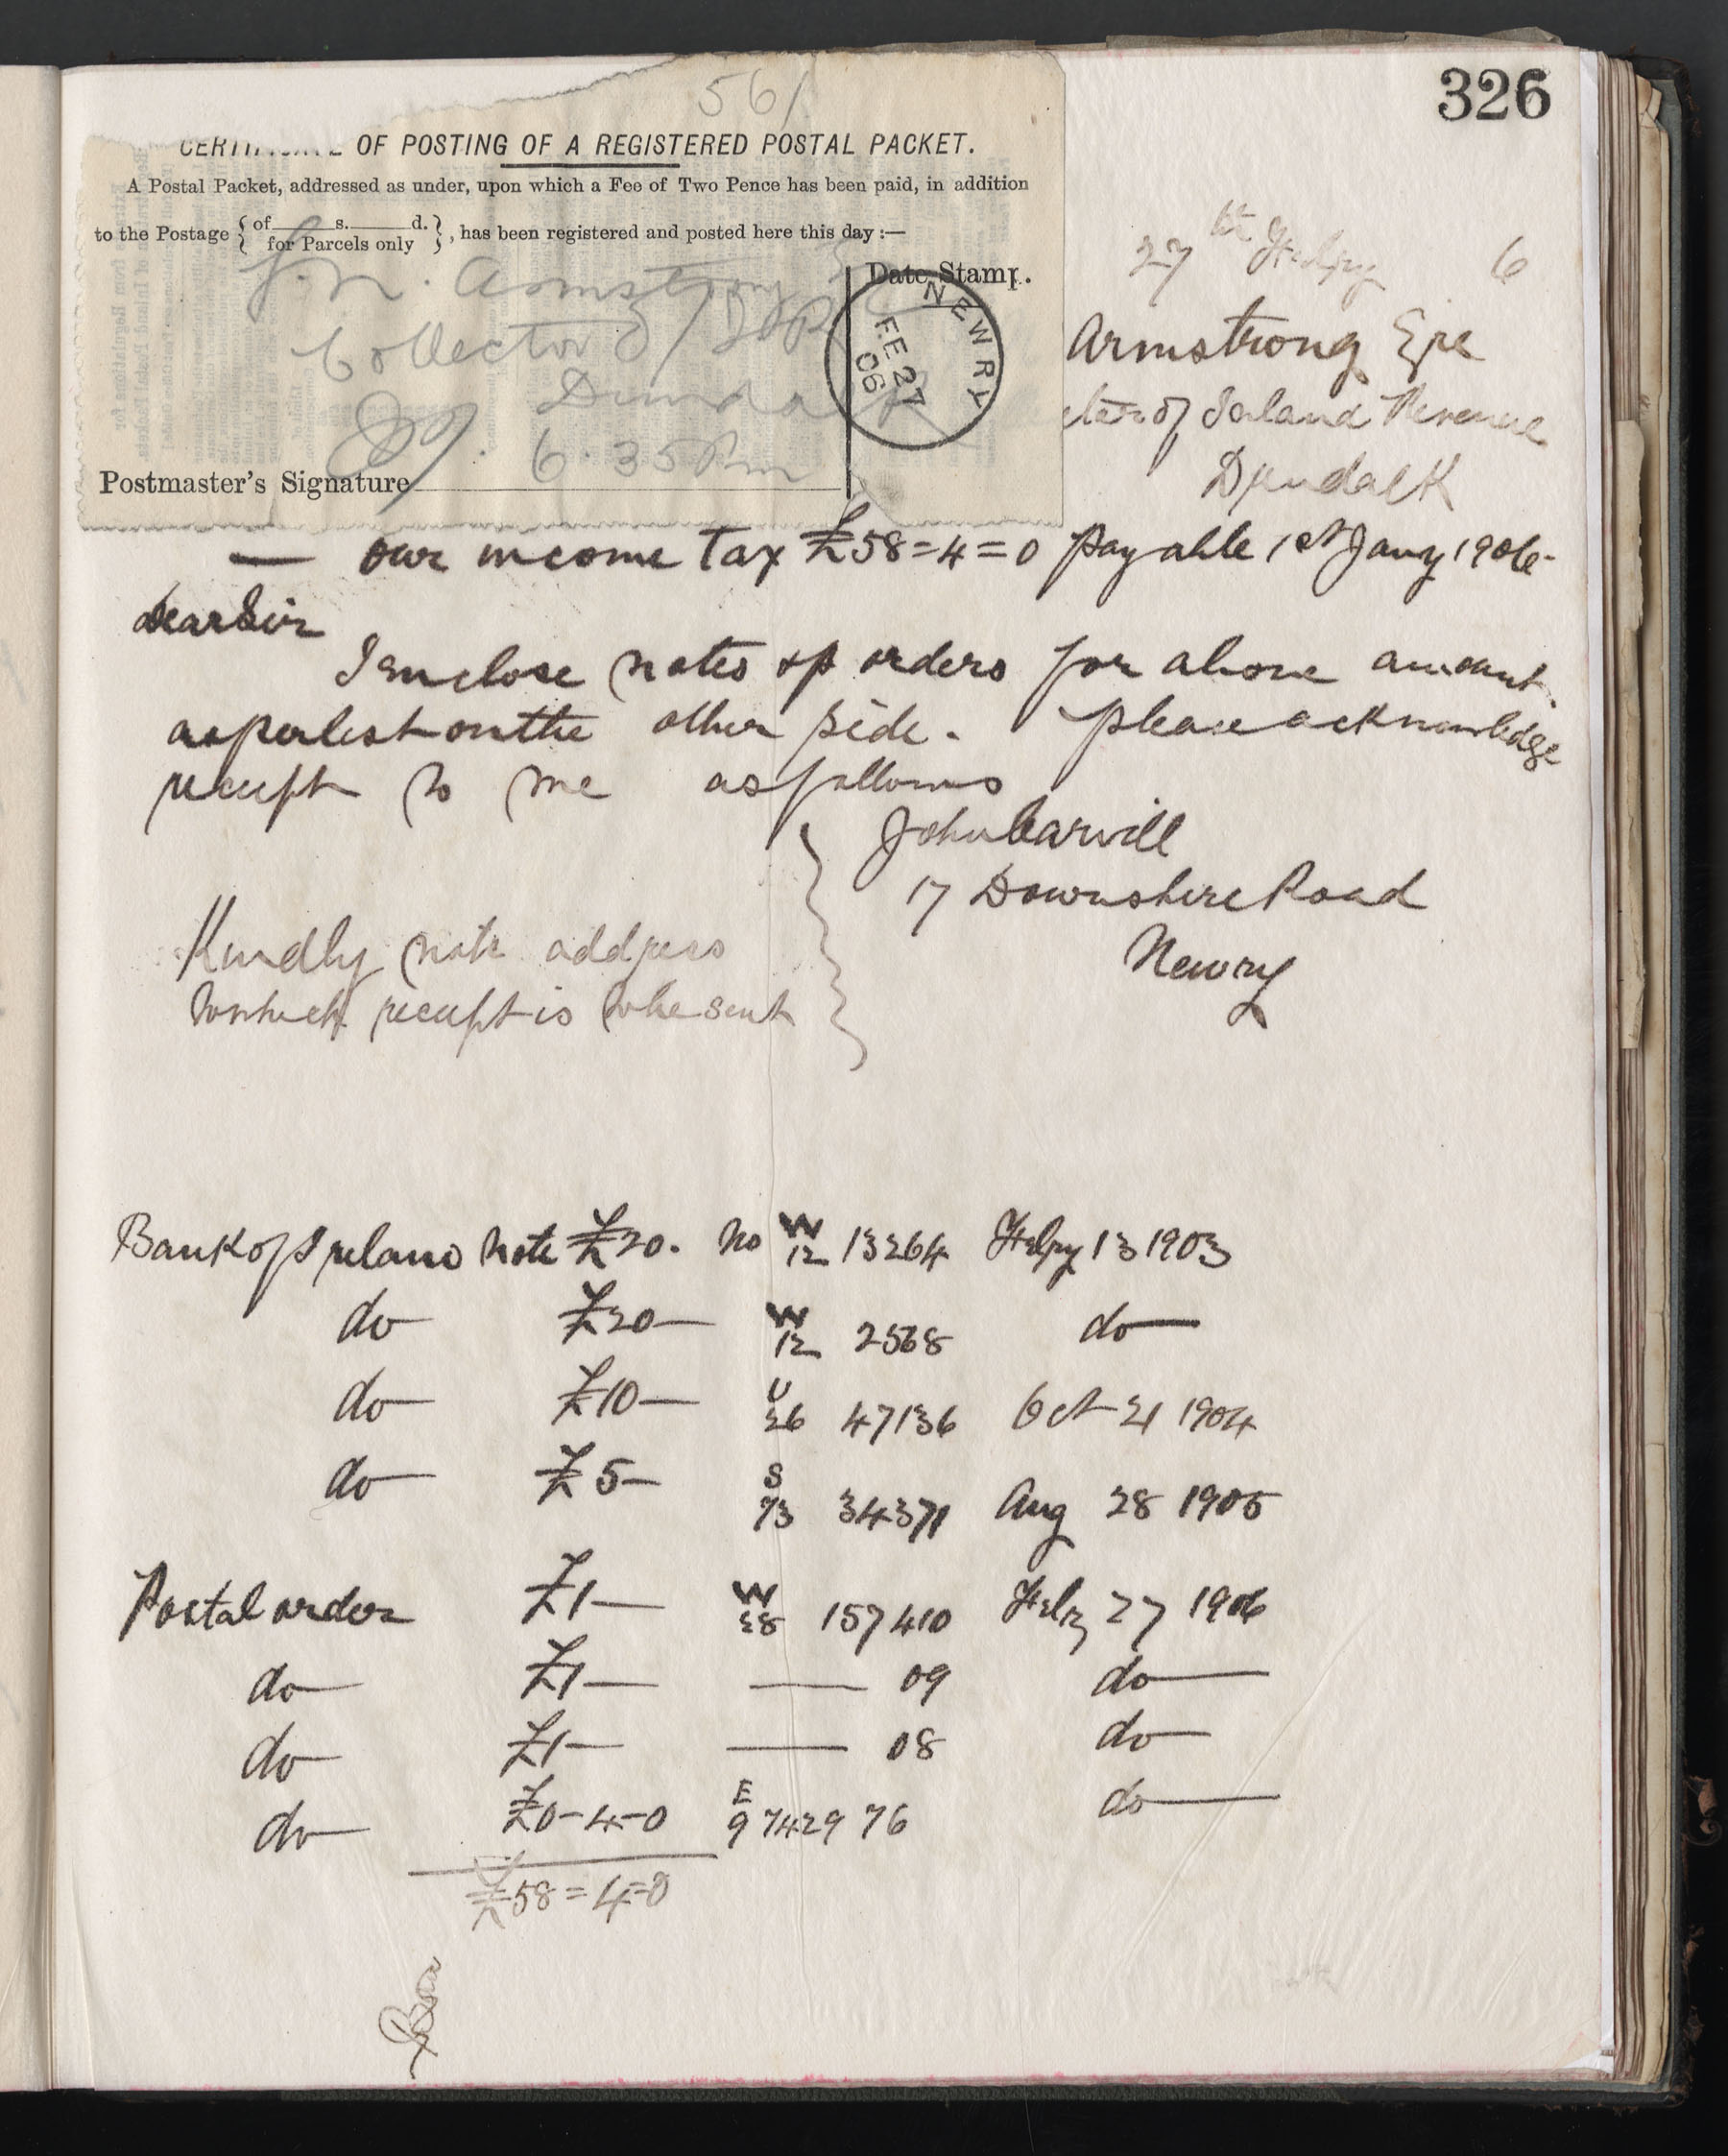 326
561
OF POSTING OF A REGISTERED POSTAL PACKET.
A Postal Packet, addressed as under, upon which a Fee of Two Pence has been paid, in addition
to the Postage { of s. d. for Parcels only } , has been registered and posted here this day :—
Armstrong
Collector
Dundalk
6.35 Pm
Date Stamp.
NEWRY
FE 27
06
Postmaster's Signature
27th Feby 6
Armstrong Esqe
of Inland Revenue
Dundalk
— our income Tax £58=4=0 payable 1st Jany 1906-
dear Sir
I enclose notes & p orders for above amount.
as per list on the other side. please acknowledge
receipt to me as follows
John Carvill
17 Downshire Road
Newry
Kindly note address
to which receipt is to be sent
Bank of Ireland note £20. No W/12 13264 Feby 13 1903
do £20— W/12 2568 do—
do £10— U/26 47136 Oct 21 1904
do £5— S/73 34371 Aug 28 1905
Postal order £1— W/38 157410 Feby 27 1906
do £1— — 09 do—
do £1— — 08 do—
do £0-4-0 E/9 742976 do—
£58=4=0